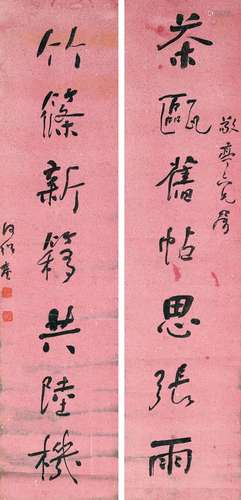 茶甌舊帖思張雨
敬亭六兄屬
竹篠新篘共陸機
何紹基